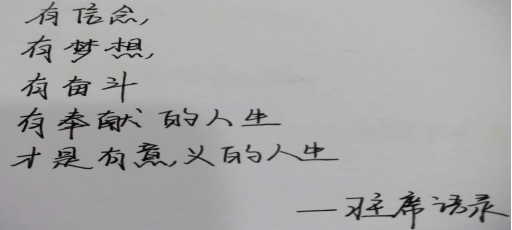 有信念,
有梦想,
有奋斗
有奉献的人生
才是有意义的人生
——习主席语录